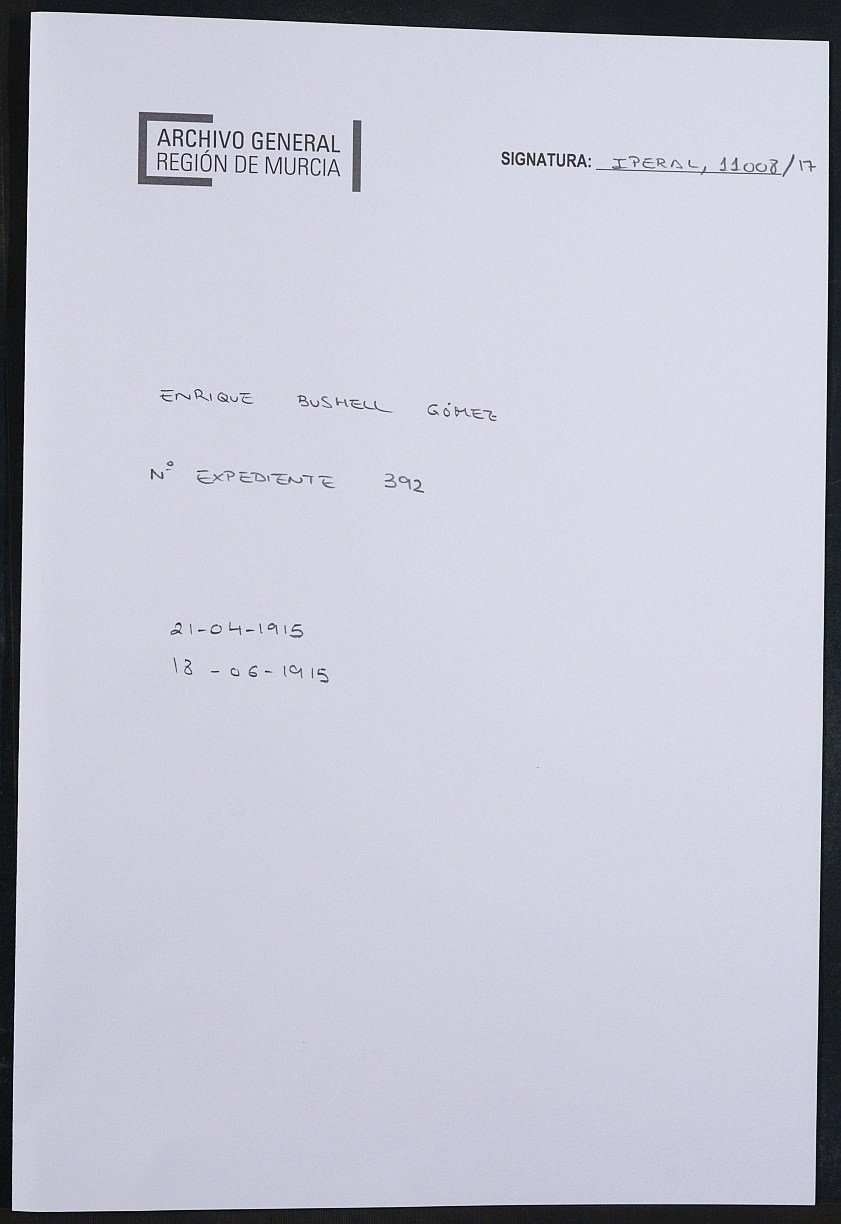 ARCHIVO GENERAL
REGIÓN DE MURCIA
SIGNATURA: IPERAL, 11008/17
ENRIQUE BUSHELL GÓMEZ
Nº EXPEDIENTE 392
21-04-1915
18-06-1915